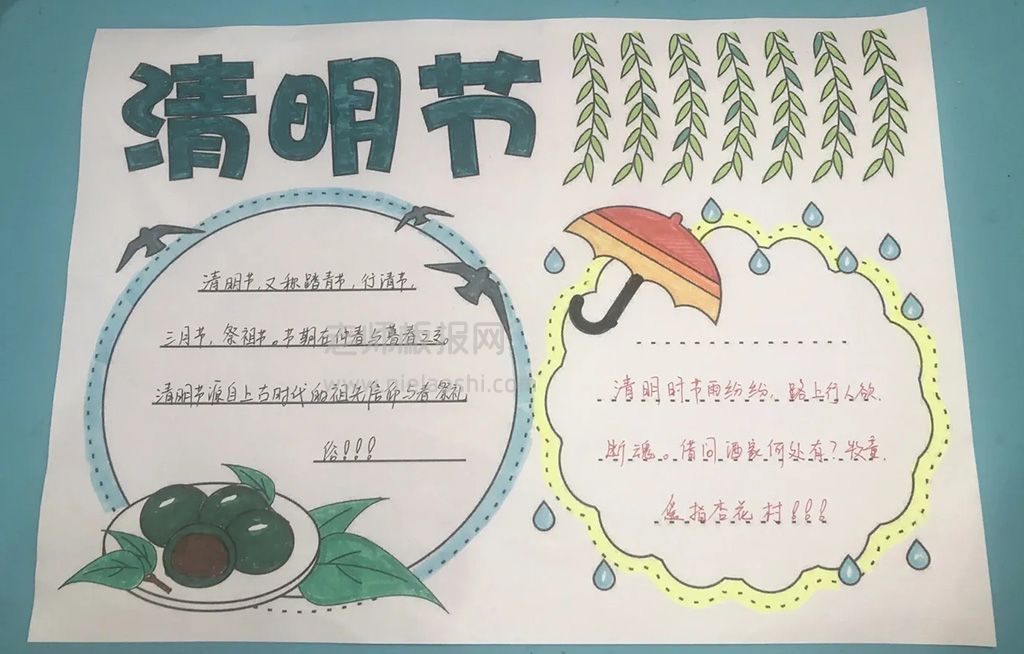 清明节
清明节,又称踏青节,行清节,
三月节,祭祖节。节期在仲春与暮春之交。
老师板报网
清明节源自上古时代的祖先信仰与春祭礼
俗!!!
清明时节雨纷纷,路上行人欲
断魂。借问酒家何处有?牧童
遥指杏花村!!!